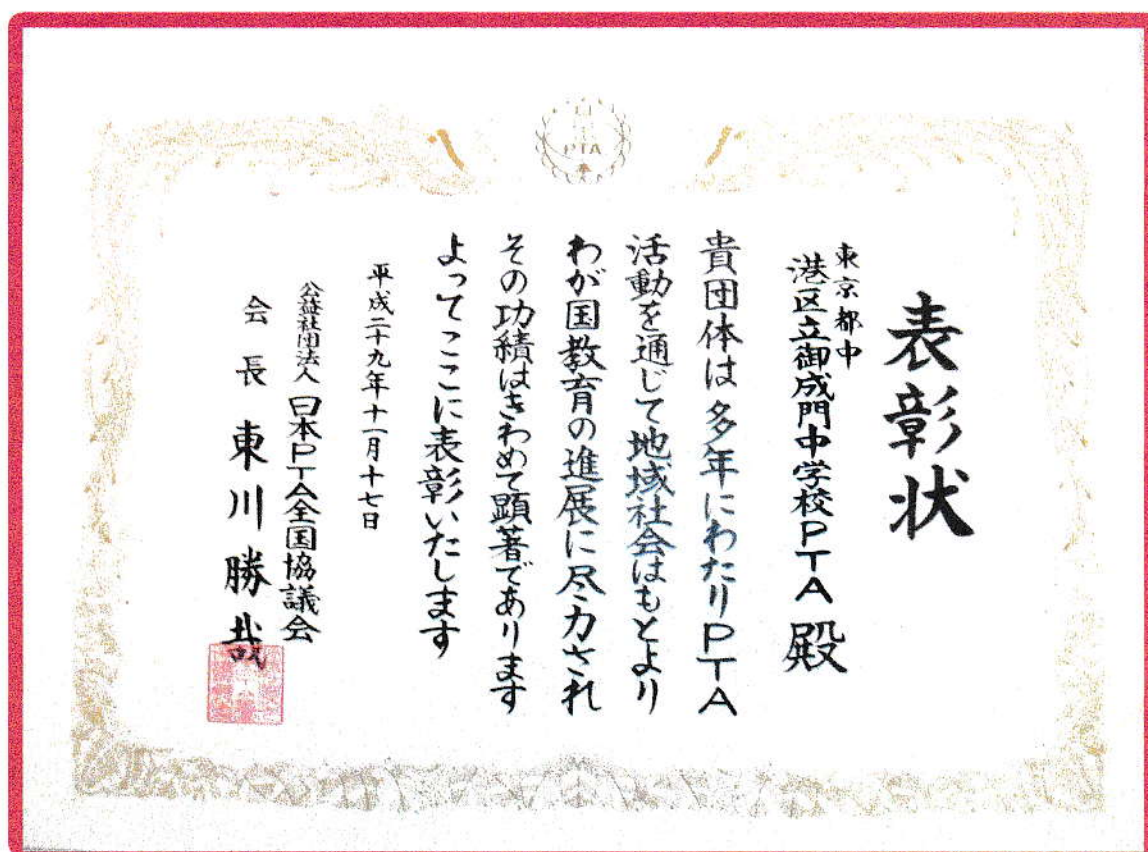 表彰状
東京都中
港区立御成門中学校PTA殿
貴団体は多年にわたりPTA
活動を通じて地域社会はもとより
わが国教育の進展に尽力され
その功績はきわめて顕著であります
よってここに表彰いたします
平成二十九年十一月十七日
公益社団法人 日本PTA全国協議会
会長 東川勝哉
PTA